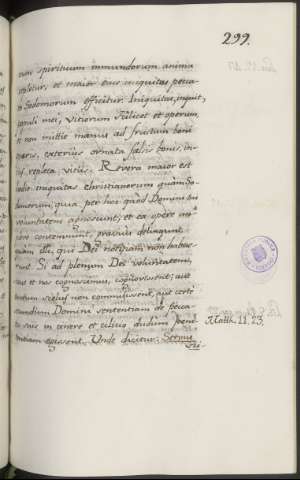 299.
spirituum inmundorum anima
repletur, et maior eius iniquitas pecca-
to Sodomorum efficitur. Iniquitas, inquit,
populi mei, vitiorum scilicet et operum,
et non mittit manus ad fructum boni
operis, exterius ornata falsis bonis, in-
tus repleta vitiis. Revera maior est
iniquitas christianorum quàm So-
domorum, quia per hoc quòd Domini sui
voluntatem agnoscunt, et ea opere
contemnunt, pravius delinquunt
quàm illi, qui Dei notitiam non habue-
runt. Si ad plenum Dei voluntatem,
sicut et nos cognovimus, cognovissent; aut
tantum scelus non commisissent, aut certè
audiendo Domini sententiam de pecca-
tis suis in cinere et cilicio dudum poeni-
tentiam egissent. Unde dicitur: Servus
Matth. 11. 23.